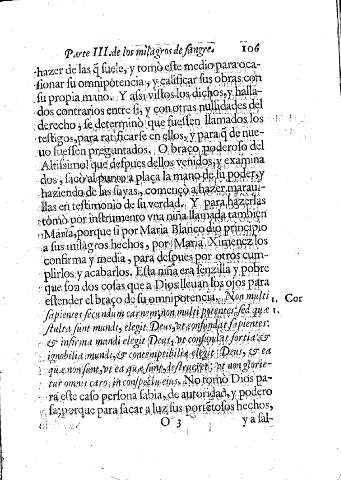 Parte III. de los milagros de sangre. 106
hazer de las q̃ suele, y tomó este medio para oca-
sionar su omnipotencia, y calificar sus obras con
su propia mano. Y assi vistos los dichos, y halla-
dolos contrarios entre si, y con otras nullidades del
derecho, se determinó que fuessen llamados los
testigos, para ratificarse en ellos, y para q̃ de nue-
uo fuessen preguntados. O braço poderoso del
Altissimo! que despues dellos venidos, y examina
dos, sacó al punto a plaça la mano de su poder, y
haziendo de las suyas, començó a hazer maraui-
llas en testimonio de su verdad. Y para hazerlas
tomó por instrumento vna niña llamada tambien
Maria, porque si por Maria Blanco dio principio
a sus milagros hechos, por Maria Ximenez los
confirma y media, para despues por otros cum-
plirlos y acabarlos. Esta niña era senzilla y pobre
que son dos cosas que a Dios lleuan los ojos para
estender el braço de su omnipotencia. Non multi 1. Cor
sapientes secundum carnem, non multi potentes, sed quæ 1.
stulta sunt mundi, elegit Deus, vt confundat sapientes:
& infirma mundi elegit Deus, vt confundat fortia: &
ignobilia mundi, & contemptibilia elegit Deus, & ea
quæ non sunt, vt ea quæ sunt, destrueret: vt non glorie-
tur omnis caro in conspectu eius. No tomó Dios pa-
ra este caso persona sabia, de autoridad, y podero
sa; porque para sacar a luz sus portẽtosos hechos,
O 3 y a sal-